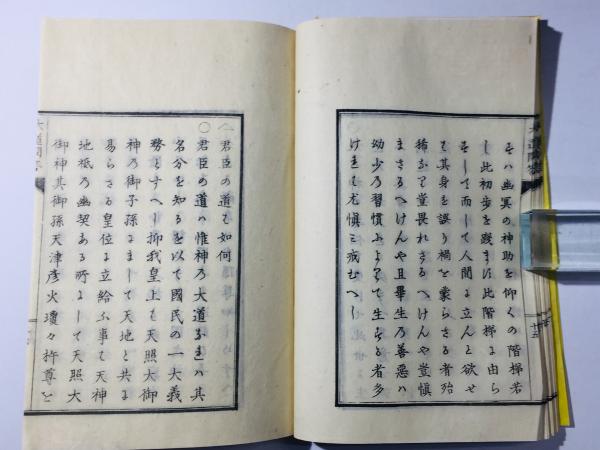 そハ幽冥の神助を仰くの階梯若
し此初歩を踐ます此階梯に由ら
すして而して人間に立んと欲せ
を其身を誤り禍を裹らさる者殆
稀なり豈畏れさるへけんや豈慎
まさるへけんや且畢生乃善悪ハ
幼少乃習慣によりて生らる者多
けれも尤慎ミ戒むへし
君臣の道も如何
〇君臣の道ハ惟神乃大道なれハ其
名分を知るを以て國民の一大義
務とすへし抑我皇上も天照大御
神乃御子孫にまして天地と共に
易らさる皇位に立給ふ事も天神
地祇乃幽契ある所にして天照大
御神其御孫天津彦火瓊々杵尊を
大道問答